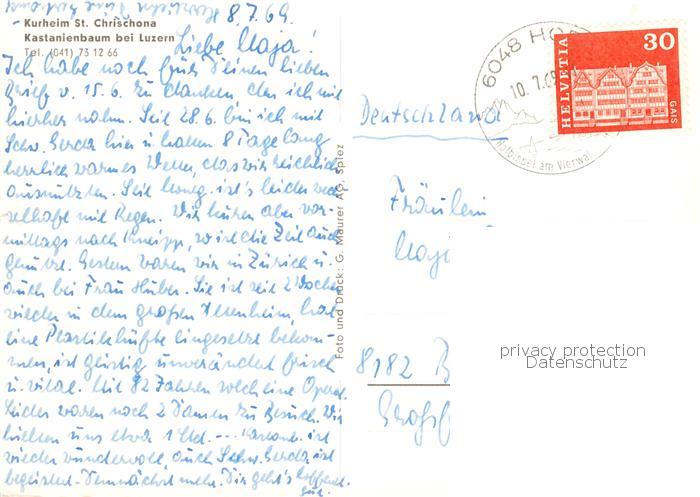 8.7.69.
Kurheim St. Chrischona
Kastanienbaum bei Luzern
Tel. (041) 73 12 66
Liebe Maja!
Ich habe noch für Deinen lieben
Brief v. 15.6. zu danken den ich mit
hierher nahm. Seit 28.6. bin ich mit
Schw. Gerda hier u. hatten 8 Tage lang
herrlich warmes Wetter, das wir reichlich
ausnützten. Seit ist's leider wech
selhaft mit Regen. Wir kuren aber vor-
mittags nach Kneipp, so ist die Zeit auch
genützt. Gestern waren wir in Zürich u.
auch bei Frau Huber. Sie ist seit 2 Wochen
wieder in dem großen Altenheim, hat
eine Plastikhüfte eingesetzt bekom-
men, ist geistig unverändert frisch
u. vital. Mit 82 Jahren solch eine Operat.
Leider waren noch 2 Damen zu Besuch. Wir
hielten uns etwa 1 Std. --- ist
wieder wundervoll, auch Schw. Gerda ist
begeistert. Demnächst mehr. Dir geht's hoffentl.
gut.
Foto und Druck: G. Maurer AG, Spiez
6048 HO
10.7.69
Halbinsel am Vierwal
HELVETIA
30
GAIS
Deutschland
Fräulein
Maj
8182 B
privacy protection
Datenschutz